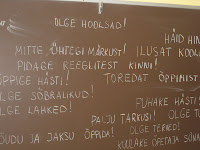 OLGE HOOLSAD!
HÄID HIN
MITTE ÜHTEGI MÄRKUST!
ILUSAT KOOLI
PIDAGE REEGLITEST KINNI!
ÕPPIGE HÄSTI!
TOREDAT ÕPPIMIST
OLGE SÕBRALIKUD!
OLGE LAHKED!
PUHAKE HÄSTI
PALJU TARKUSI!
OLGE TERVED!
OLGE TERI
JÕUDU JA JAKSU ÕPPIDA!
KUULAKE ÕPETAJA SÕNA